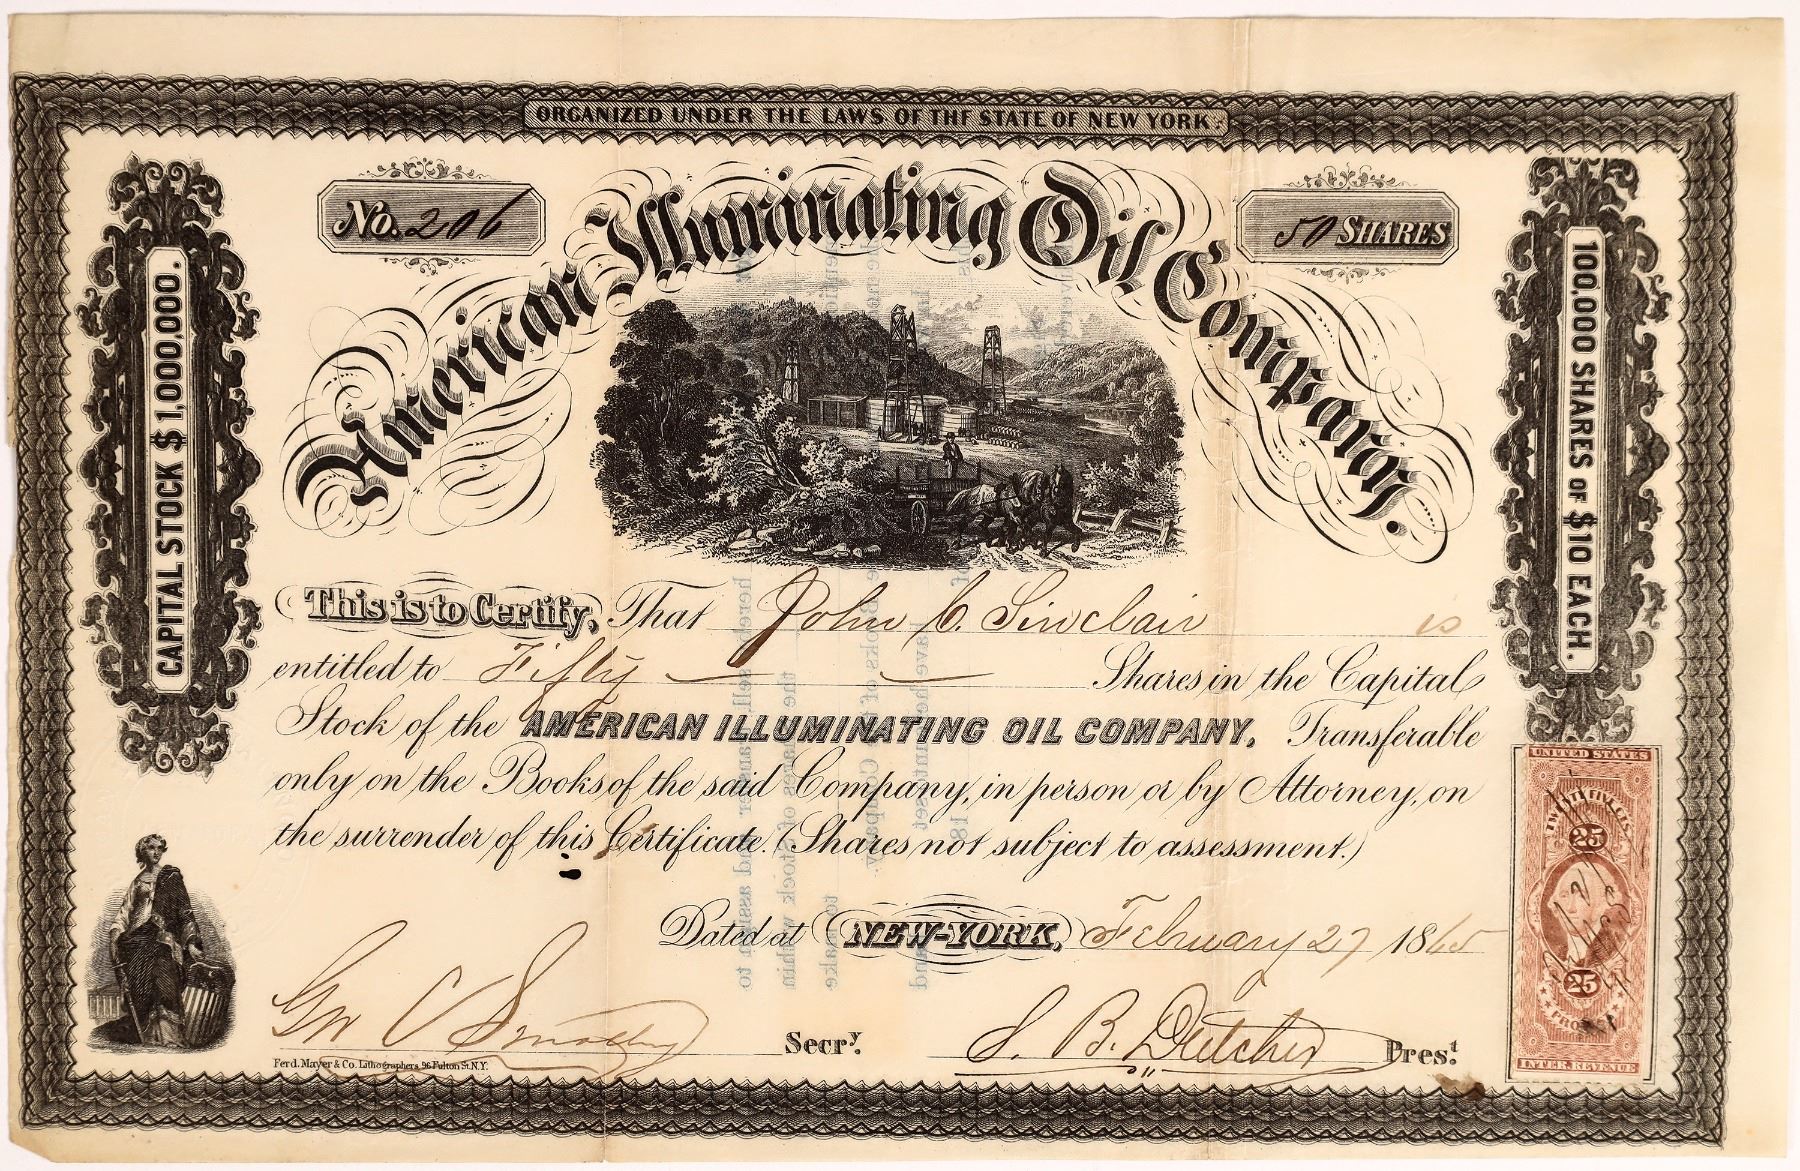 ORGANIZED UNDER THE LAWS OF THE STATE OF NEW YORK
No. 206
50 SHARES
American Illuminating Oil Company.
CAPITAL STOCK $1,000,000.
100,000 SHARES OF $10 EACH.
This is to Certify, That John C. Sinclair is
entitled to Fifty Shares in the Capital
Stock of the AMERICAN ILLUMINATING OIL COMPANY, Transferable
only on the Books of the said Company, in person or by Attorney, on
the surrender of this Certificate. (Shares not subject to assessment.)
Dated at NEW-YORK, February 27 1865
Secry.
S. B. Dutcher Prest.
Ferd. Mayer & Co. Lithographers, 96 Fulton St. N.Y.
UNITED STATES
TWENTY FIVE CTS.
25
25
INTER. REVENUE